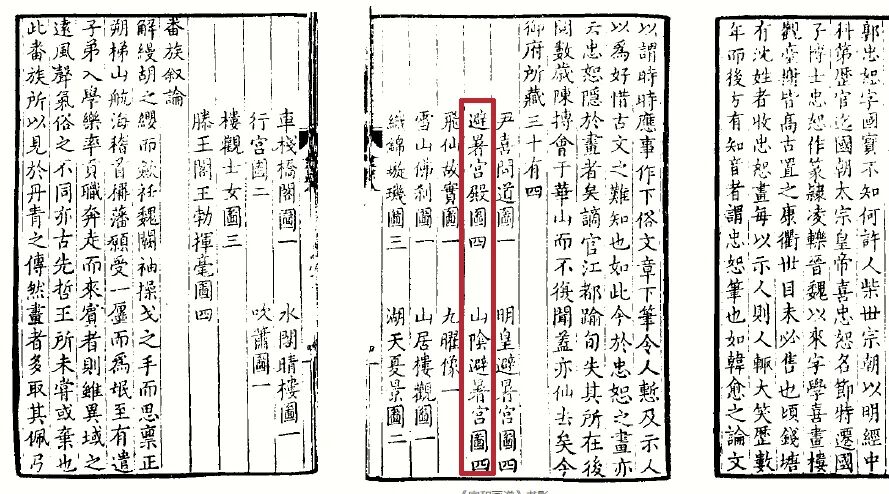 郭忠恕字國寶不知何許人柴世宗朝以明經中
科第歷官迄國朝太宗皇帝喜忠恕名節特遷國
子博士忠恕作篆隸凌轢晉魏以來字學喜畫樓
觀臺榭皆高古置之康衢世目未必售也頃錢塘
有沈姓者收忠恕畫每以示人則人輒大笑歷數
年而後方有知音者謂忠恕筆也如韓愈之論文
以謂時時應事作下俗文章下筆令人慙及示人
以為好惜古文之難知也如此今於忠恕之畫亦
云忠恕隱於畫者矣謫官江都踰旬失其所在後
閱數歲陳摶會于華山而不復聞蓋亦仙去矣今
御府所藏三十有四
尹喜問道圖一 明皇避暑宮圖四
避暑宮殿圖四 山陰避暑宮圖四
飛仙故實圖一 九曜像一
雪山佛刹圖一 山居樓觀圖一
織錦璇璣圖三 湖天夏景圖二
車棧橋閣圖一 水閣晴樓圖一
行宮圖二 吹簫圖一
樓觀士女圖三
滕王閣王勃揮毫圖四
番族叙論
解縵胡之纓而斂衽魏闕袖操戈之手而思稟正
朔梯山航海稽首稱藩願受一廛而為氓至有遣
子弟入學樂率貢職奔走而來賓者則雖異域之
遠風聲氣俗之不同亦古先哲王所未嘗或棄也
此番族所以見於丹青之傳然畫者多取其佩弓